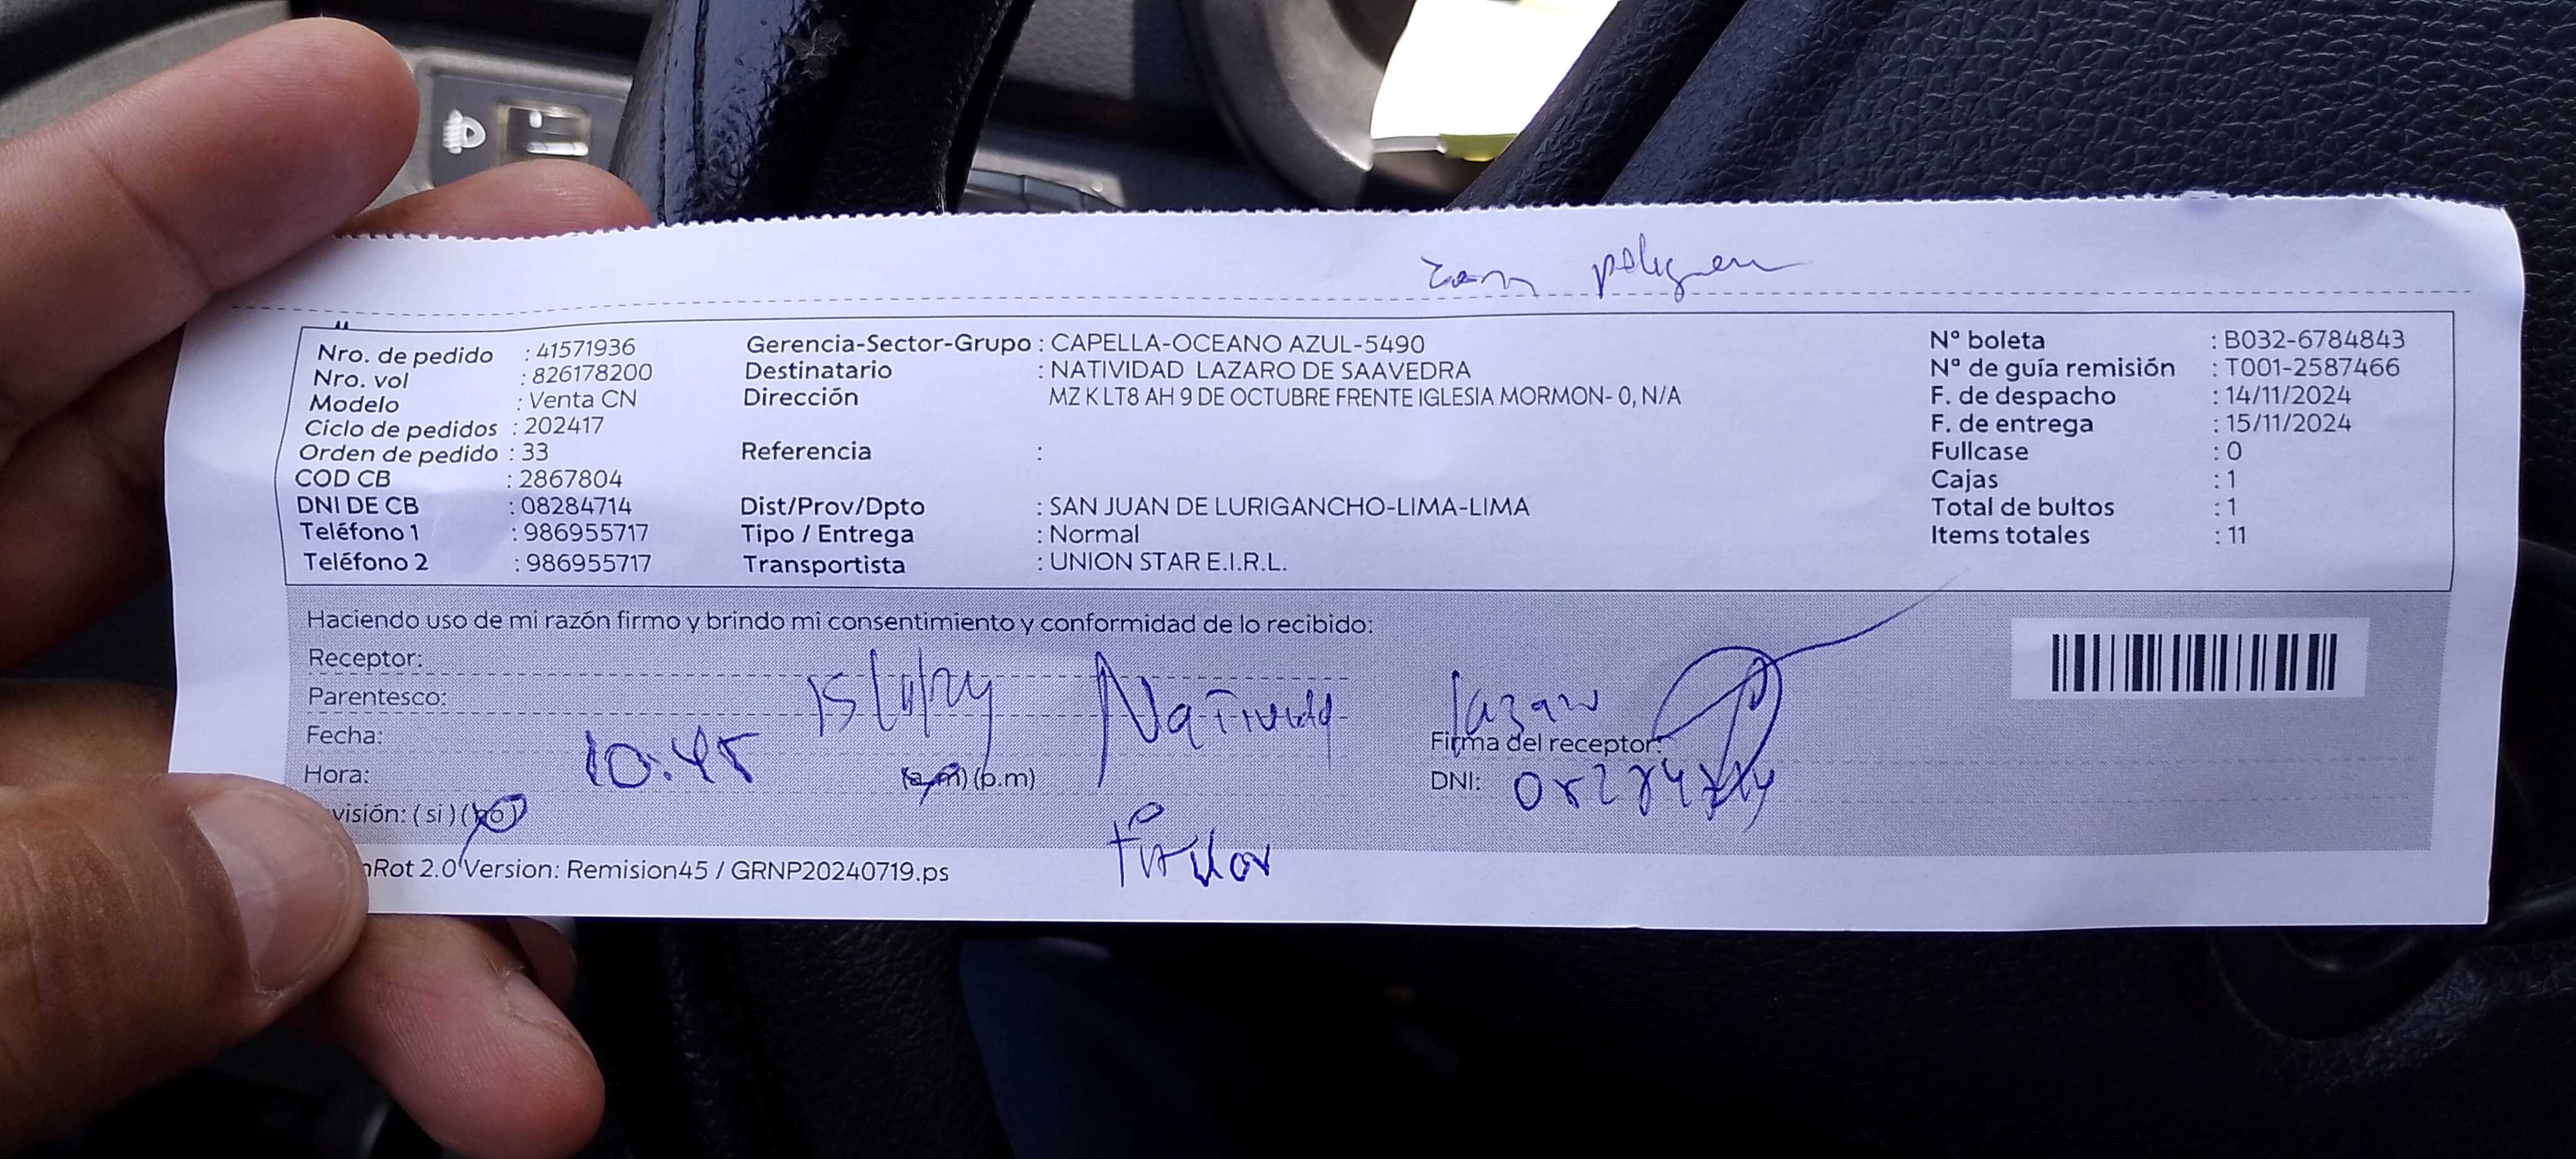 Nro. de pedido : 41571936
Nro. vol : 826178200
Modelo : Venta CN
Ciclo de pedidos : 202417
Orden de pedido : 33
COD CB : 2867804
DNI DE CB : 08284714
Teléfono 1 : 986955717
Teléfono 2 : 986955717
Gerencia-Sector-Grupo : CAPELLA-OCEANO AZUL-5490
Destinatario : NATIVIDAD LAZARO DE SAAVEDRA
Dirección MZ K LT8 AH 9 DE OCTUBRE FRENTE IGLESIA MORMON- 0, N/A
Referencia :
Dist/Prov/Dpto : SAN JUAN DE LURIGANCHO-LIMA-LIMA
Tipo / Entrega : Normal
Transportista : UNION STAR E.I.R.L.
Nº boleta : B032-6784843
Nº de guía remisión : T001-2587466
F. de despacho : 14/11/2024
F. de entrega : 15/11/2024
Fullcase : 0
Cajas : 1
Total de bultos : 1
Items totales : 11
Haciendo uso de mi razón firmo y brindo mi consentimiento y conformidad de lo recibido:
Receptor:
Parentesco: 15/11/24 Natividad Lazaro
Fecha:
Firma del receptor:
Hora: 10:45 (a.m) (p.m)
DNI:
visión: ( si ) (no)
Rot 2.0 Version: Remision45 / GRNP20240719.ps